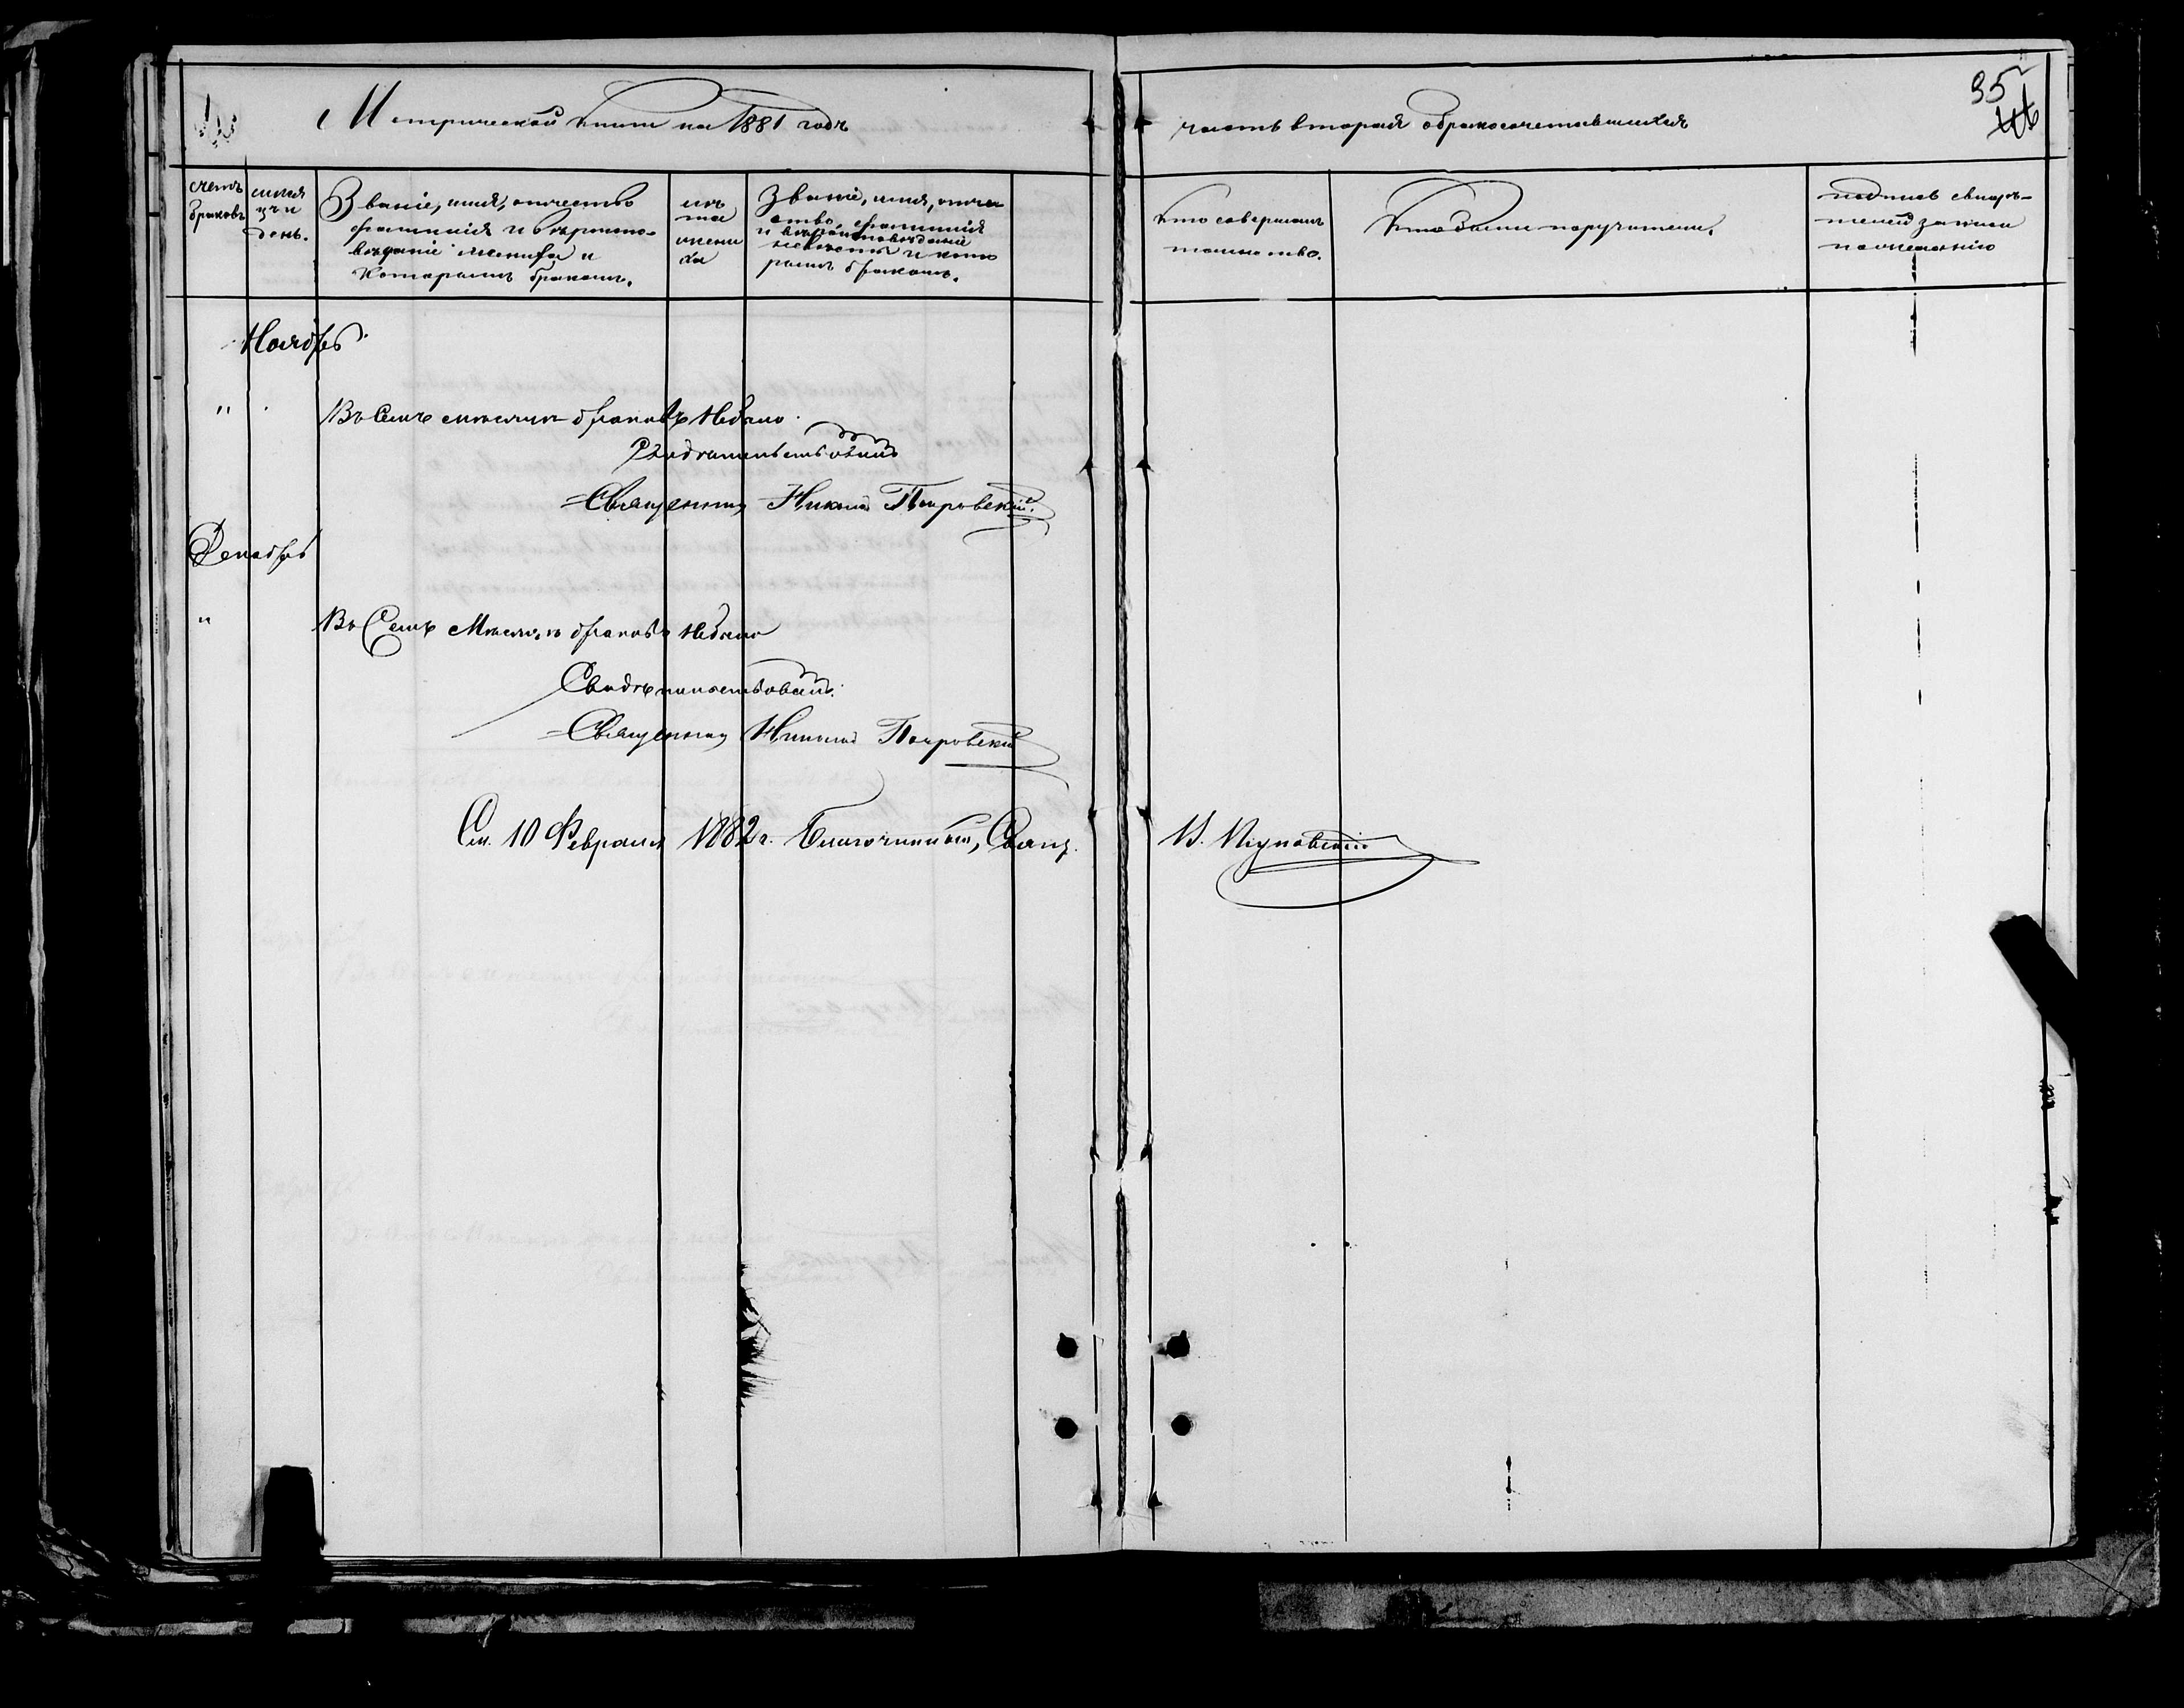 Метрической книги на 1881 годъ
часть вторая о бракосочетавшихся
35
счетъ браковъ
мѣсяцъ и день.
Званіе, имя, отчество
фамилія и вѣроиспо-
вѣданіе жениха и
которымъ бракомъ.
лѣта жениха
Званіе, имя, отче
ство, фамилія
и вѣроисповѣданіе
невѣсты и кото
рымъ бракомъ.
Кто совершалъ
таинство.
Кто были поручители.
подпись свидѣ-
телей записи
по желанію
Ноябрь.
" Въ семъ мѣсяцѣ браковъ небыло.
Свидѣтельствовалъ
Священникъ Николай Покровскій.
Декабрь
" Въ Семъ Мѣсяцѣ браковъ небыло
Свидѣтельствовалъ:
Священникъ Николай Покровскій
См. 10 Февраля 1882 г. Благочинный, Свящ.